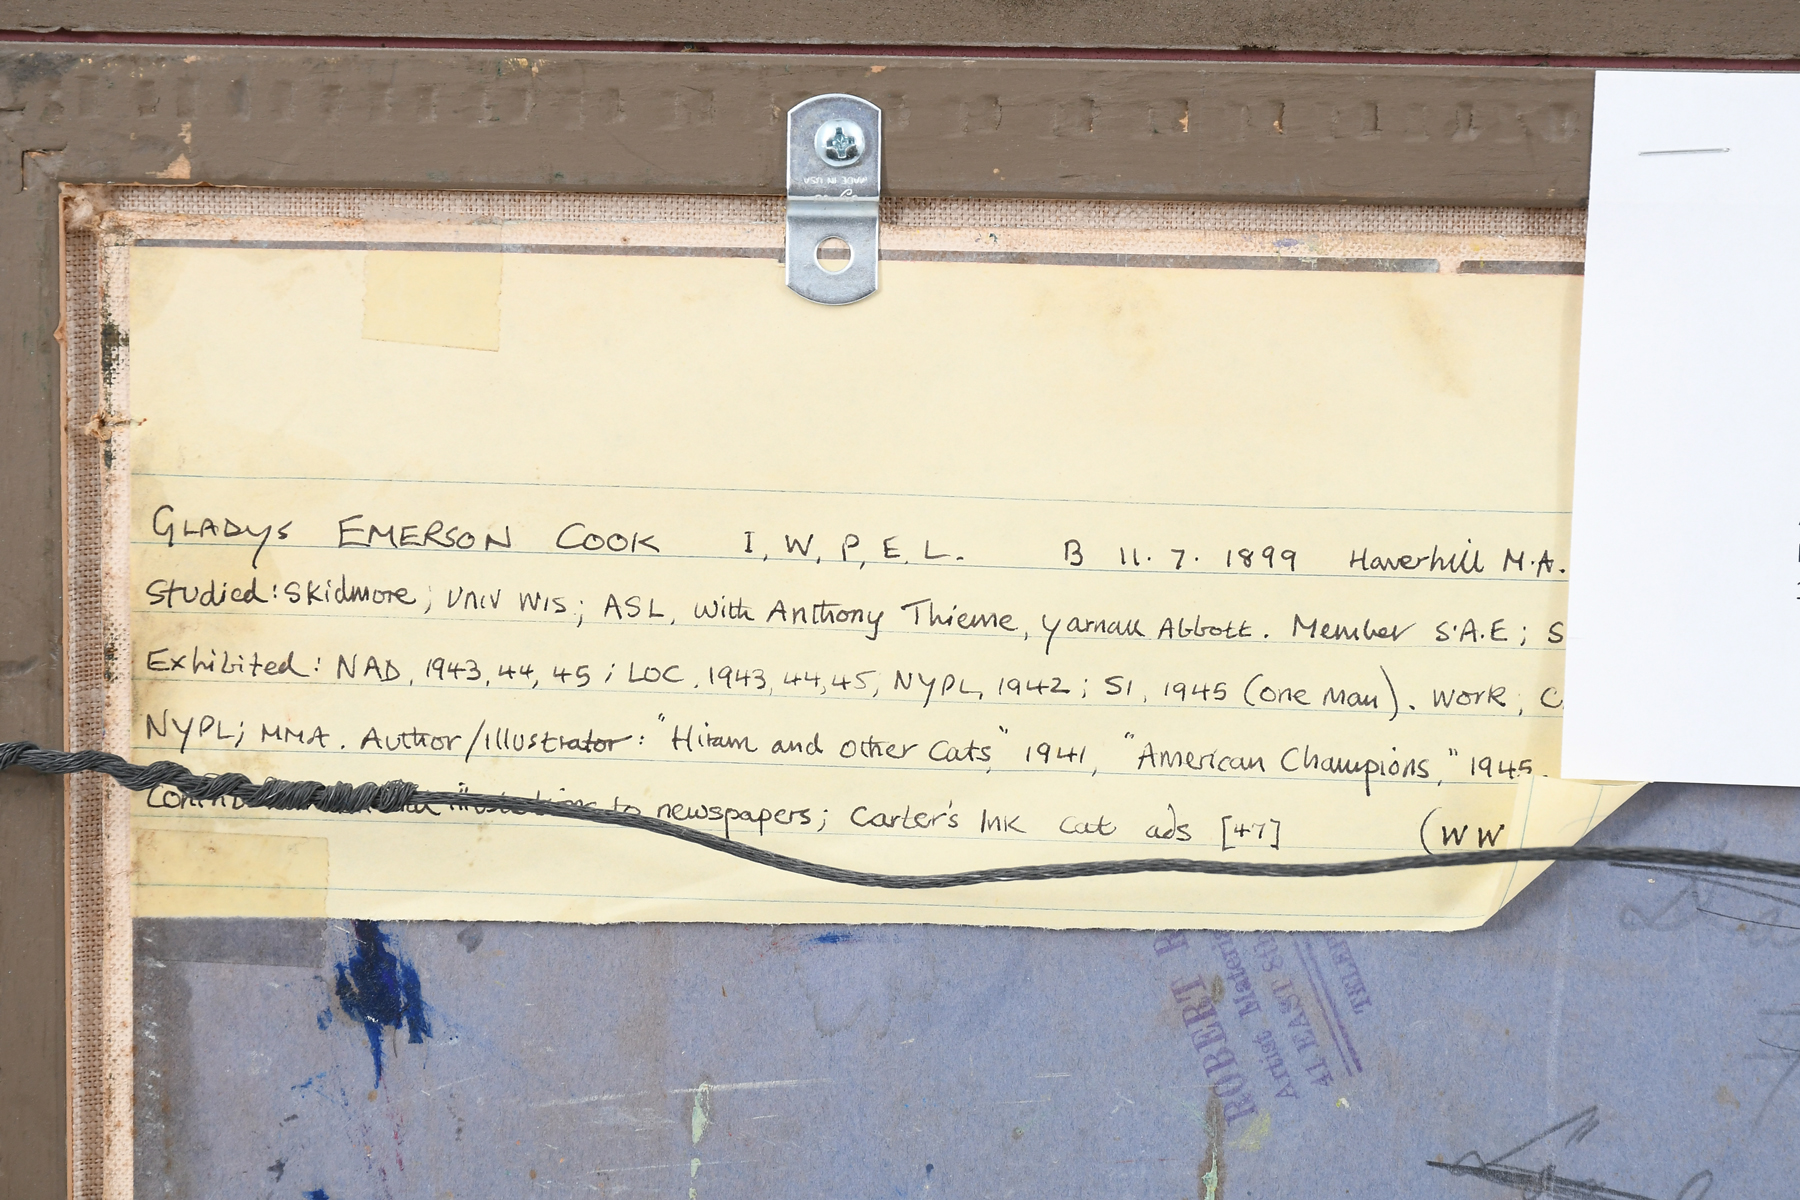 MADE IN USA
GLADYS EMERSON COOK I, W, P, E, L. B 11. 7. 1899 Haverhill M.A.
Studied: Skidmore; Univ Wis; ASL, with Anthony Thieme, Yarnall Abbott. Member S.A.E; S
Exhibited: NAD, 1943, 44, 45; LOC, 1943, 44, 45, NYPL, 1942; SI, 1945 (one man). Work; C
NYPL; MMA. Author/Illustrator: "Hiram and other Cats," 1941, "American Champions," 1945.
illustrations to newspapers; Carter's Ink cat ads [47] (WW
ROBERT R
Artist Materi
41 EAST 8th
TELE